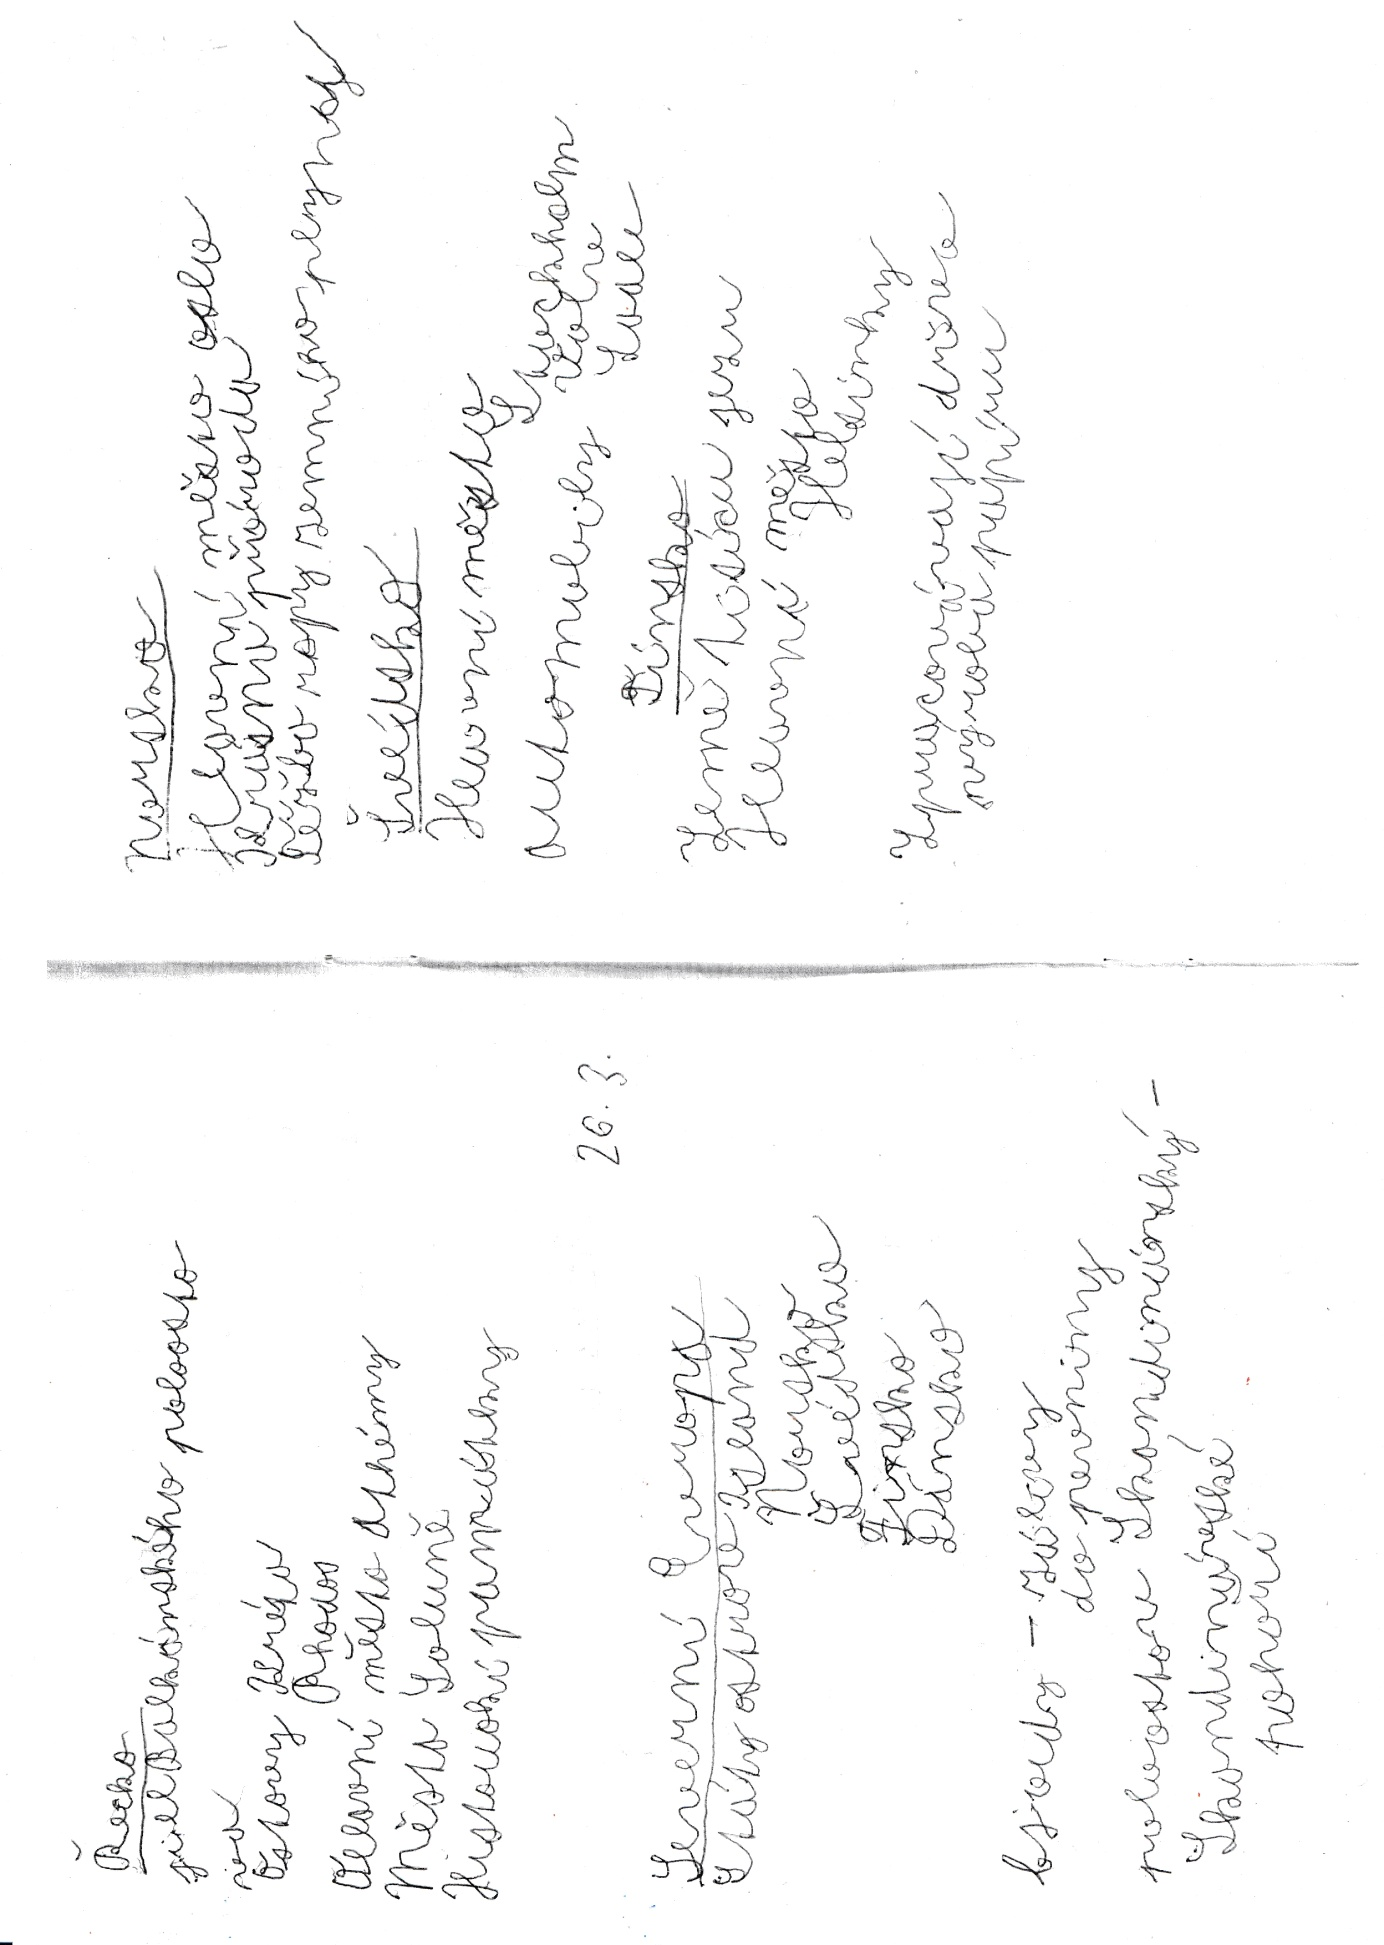 Řecko
jih Balkánského poloosto
rov
Ostovy Kréta
Rhodos
Hlavní město Athémy
Město Soluně
Historické památkay
26. 3.
Severní Evropa
Státy ostrov Island
Norsko
Švédsko
Finsko
Dánsko
fjordy - zálivy
do pevniny
poloostov Skandinávský -
Skandinávské
pohoří
Norsko
Hlavní město oslo
Krásná příroda
těžba ropy zemního plynas
Švédsko
Hlavní město
Stockholm
automobily Volvo
Finsko
Země tisíců jezu
Hlavní město
Helsinky
Zpracovávají dřeva
výroba papíru